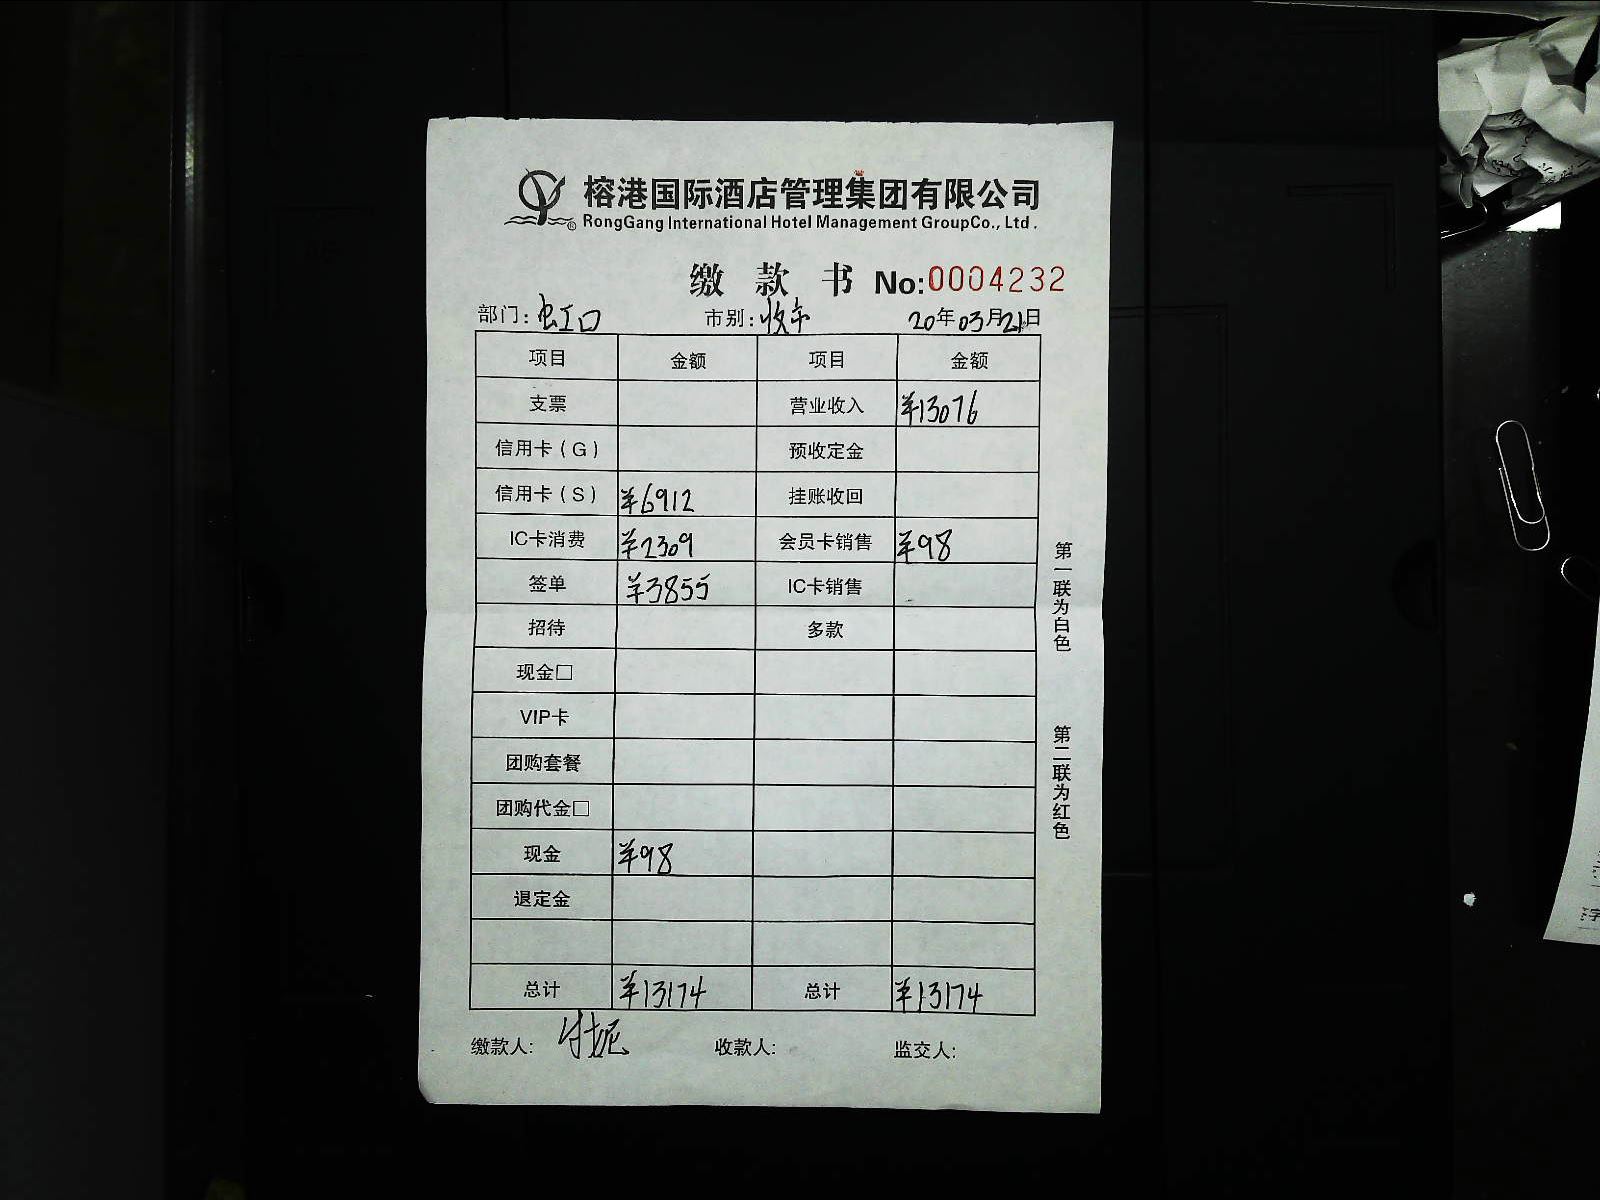 榕港国际酒店管理集团有限公司
RongGang International Hotel Management GroupCo., Ltd.
缴款书 No:0004232
部门: 虹口 市别: 收市 20年03月21日
项目 金额 项目 金额
支票 营业收入 ¥13076
信用卡(G) 预收定金
信用卡(S) ¥6912 挂账收回
IC卡消费 ¥2309 会员卡销售 ¥98
签单 ¥3855 IC卡销售
招待 多款
现金□
VIP卡
团购套餐
团购代金□
现金 ¥98
退定金
总计 ¥13174 总计 ¥13174
缴款人: 收款人: 监交人:
第一联为白色
第二联为红色